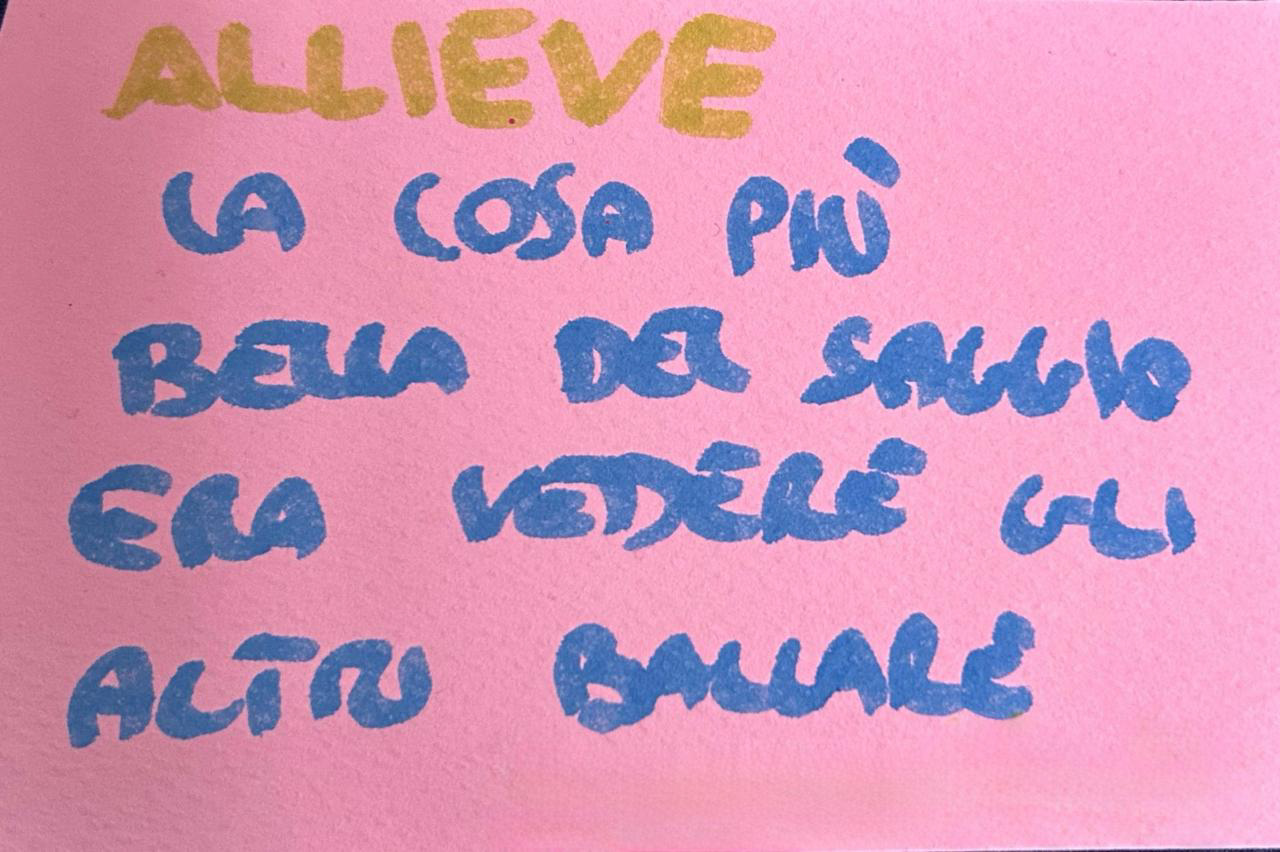 ALLIEVE
LA COSA PIÙ
BELLA DEL SAGGIO
ERA VEDERE GLI
ALTRI BALLARE